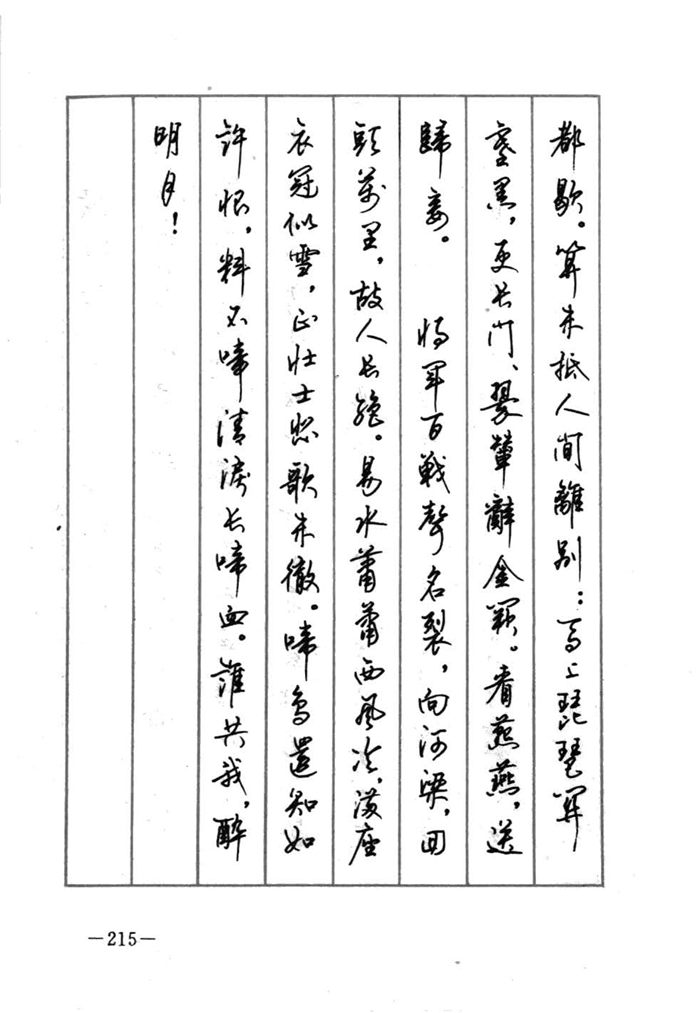 都歇。算未抵人间離别：马上琵琶関
塞黑，更长门、翠輦辭金闕。看燕燕，送
歸妾。　将军百戰聲名裂，向河梁，回
頭萬里，故人长絶。易水萧萧西風冷，满座
衣冠似雪，正壮士悲歌未徹。啼鸟還知如
許恨，料不啼清淚长啼血。誰共我，醉
明月！
—215—